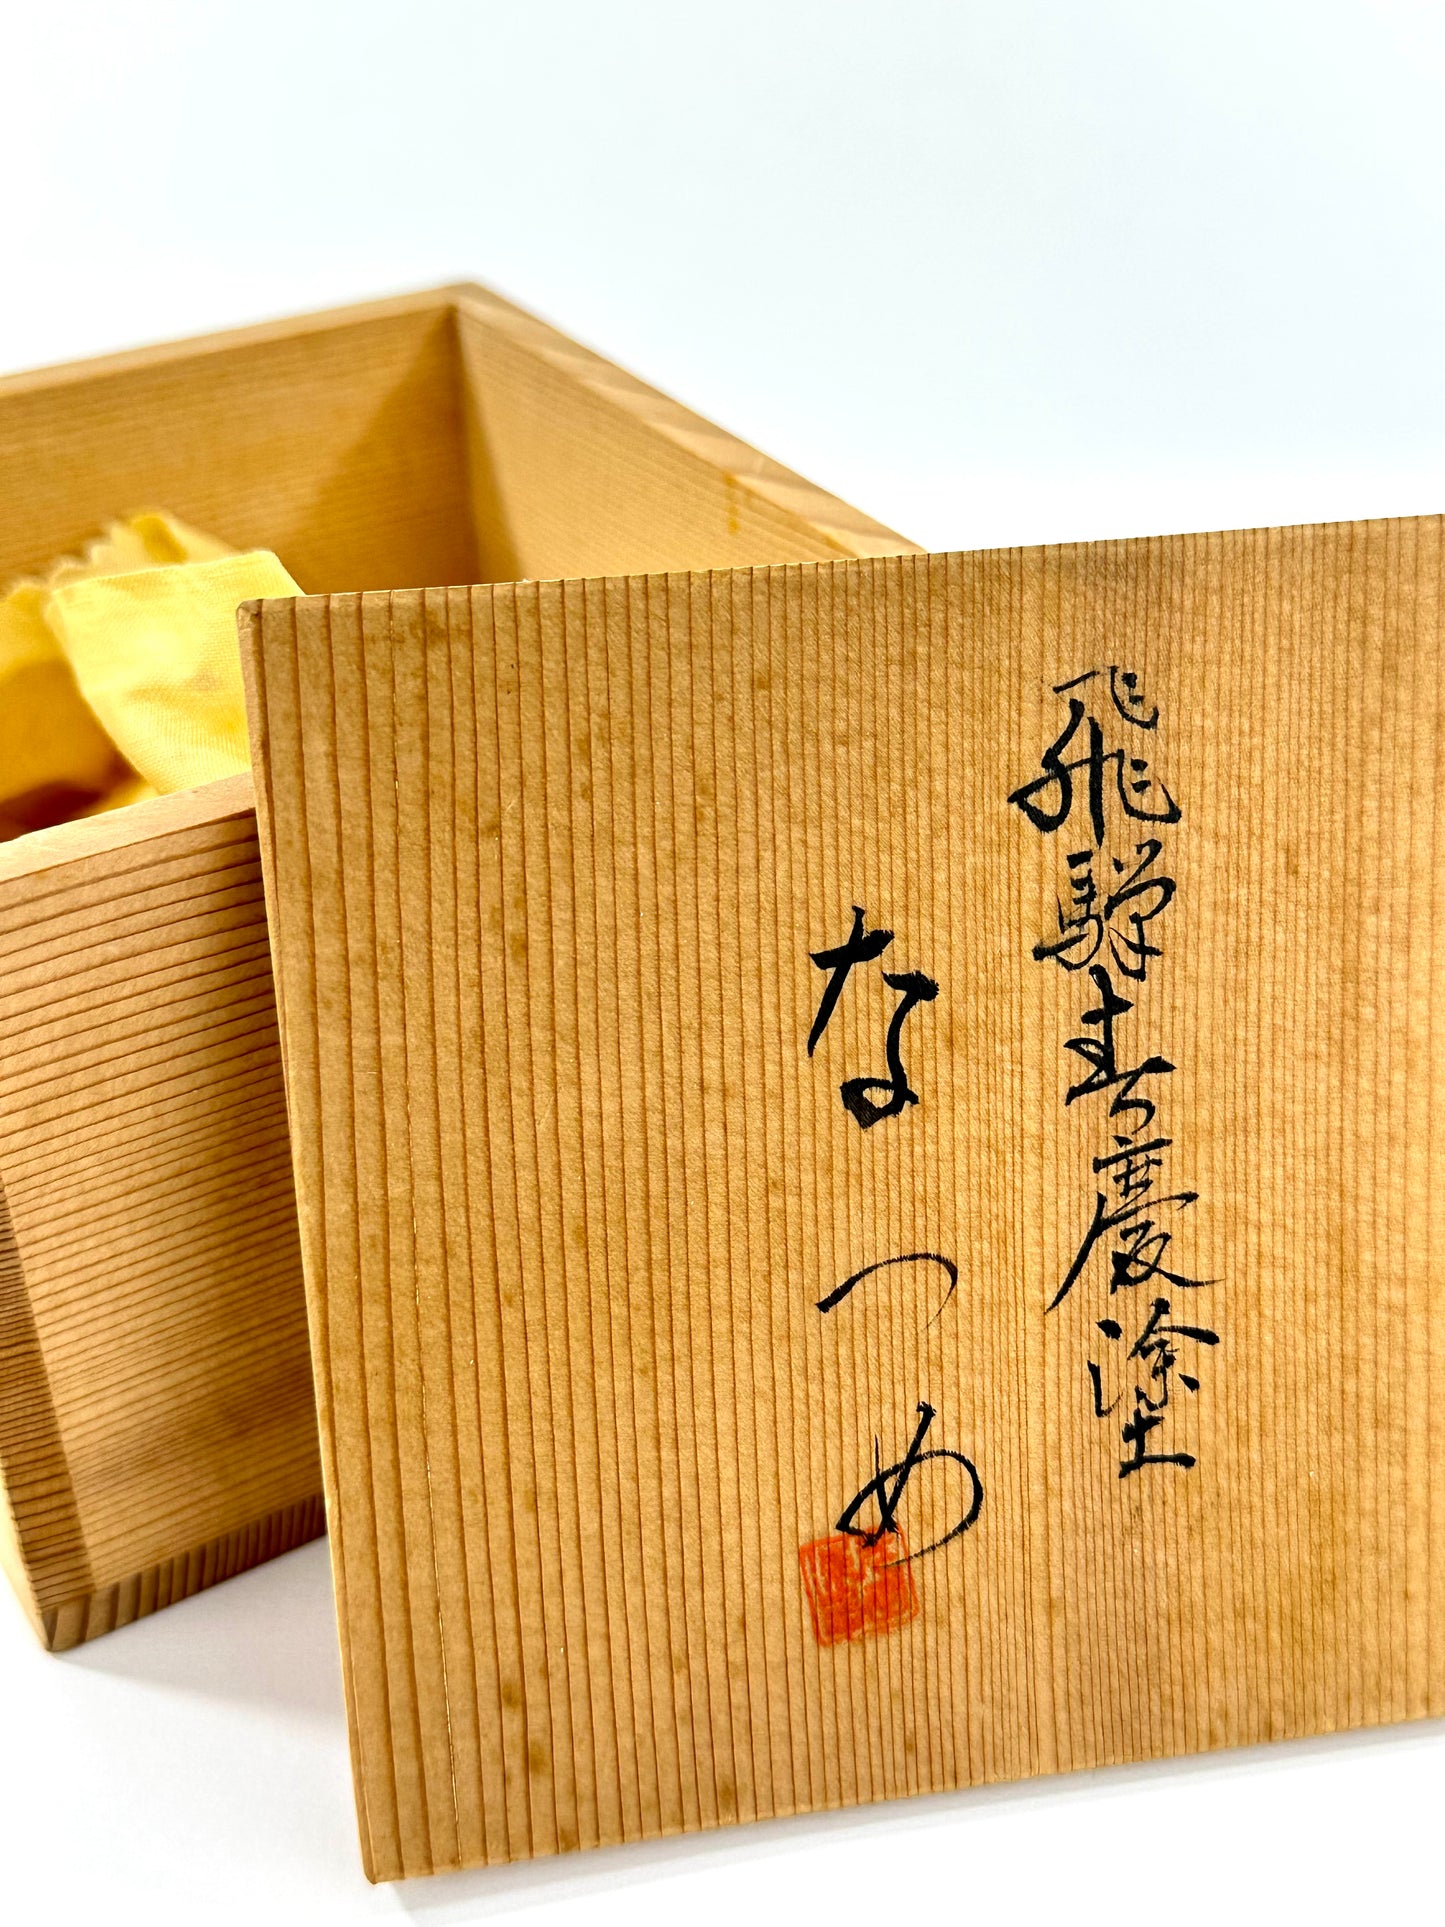 飛騨春慶塗
なつめ